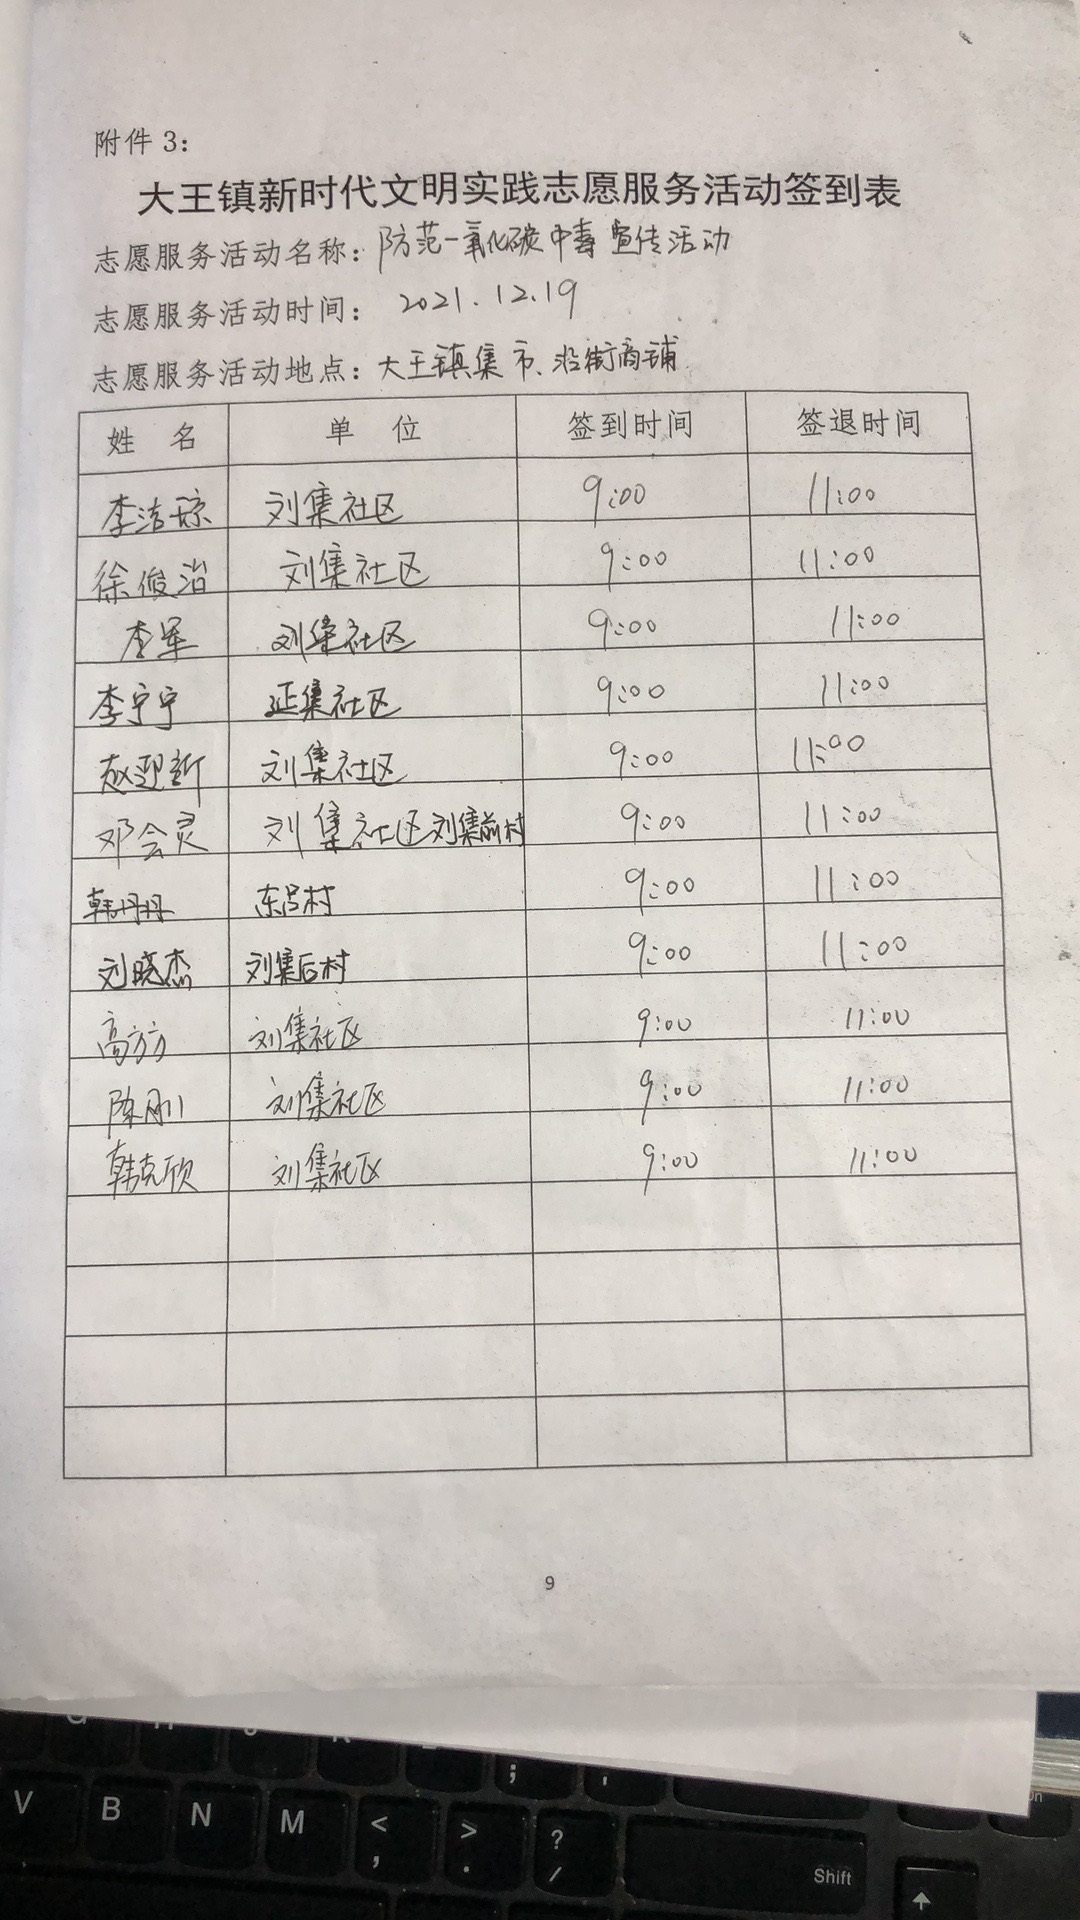 附件 3：
大王镇新时代文明实践志愿服务活动签到表
志愿服务活动名称：防范一氧化碳中毒宣传活动
志愿服务活动时间： 2021.12.19
志愿服务活动地点：大王镇集市、沿街商铺
姓 名 单 位 签到时间 签退时间
李洁琼 刘集社区 9:00 11:00
徐俊治 刘集社区 9:00 11:00
李军 刘集社区 9:00 11:00
李宁宁 延集社区 9:00 11:00
赵迎新 刘集社区 9:00 11:00
邓会灵 刘集社区刘集前村 9:00 11:00
韩丹丹 东吕村 9:00 11:00
刘晓杰 刘集后村 9:00 11:00
高方方 刘集社区 9:00 11:00
陈刚 刘集社区 9:00 11:00
韩克欣 刘集社区 9:00 11:00
9
; '
V B N M < , > . ? / Shift